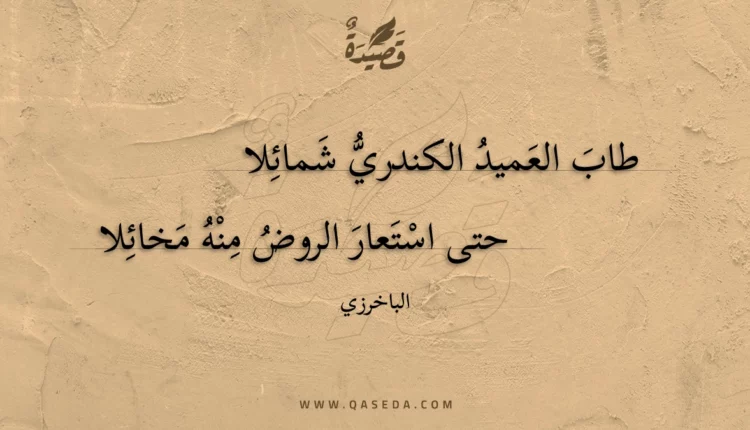 قَصِيدَةٌ
طابَ العَميدُ الكندريُّ شَمائِلا
حتى اسْتَعارَ الروضُ مِنْهُ مَخائِلا
الباخرزي
WWW.QASEDA.COM